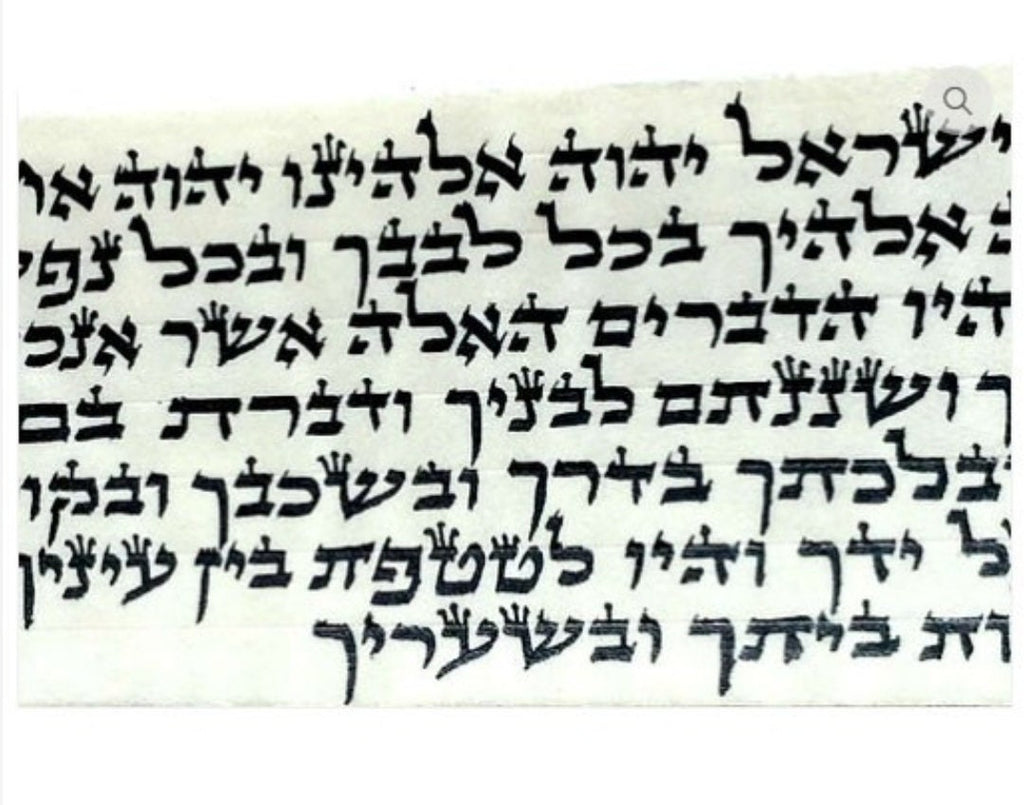 ישראל יהוה אלהינו יהוה א
ה אלהיך בכל לבבך ובכל נפ
היו הדברים האלה אשר אנכ
ך ושננתם לבניך ודברת בם
ובלכתך בדרך ובשכבך ובקו
ל ידך והיו לטטפת בין עיניך
ות ביתך ובשעריך